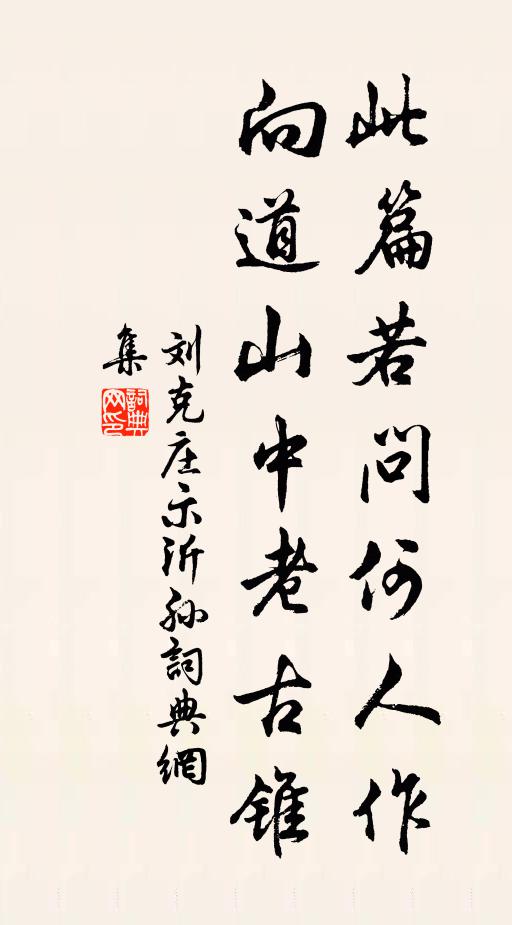 此篇若问何人作
向道山中老古锥
刘克庄示沂孙詞典網
集
詞典
网印